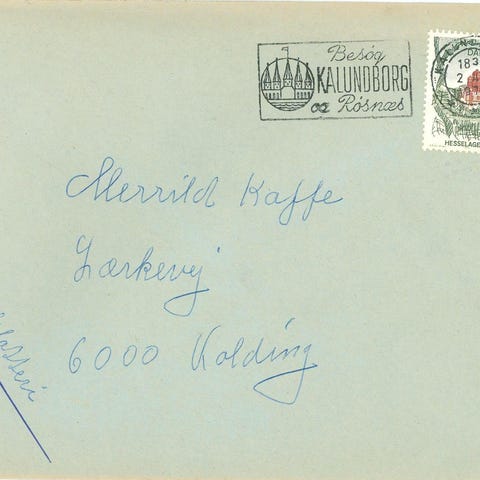 Besøg
KALUNDBORG
og Røsnæs
KALUND
DA
183
2
HESSELAGE
Merrild Kaffe
Lærkevej
6000 Kolding